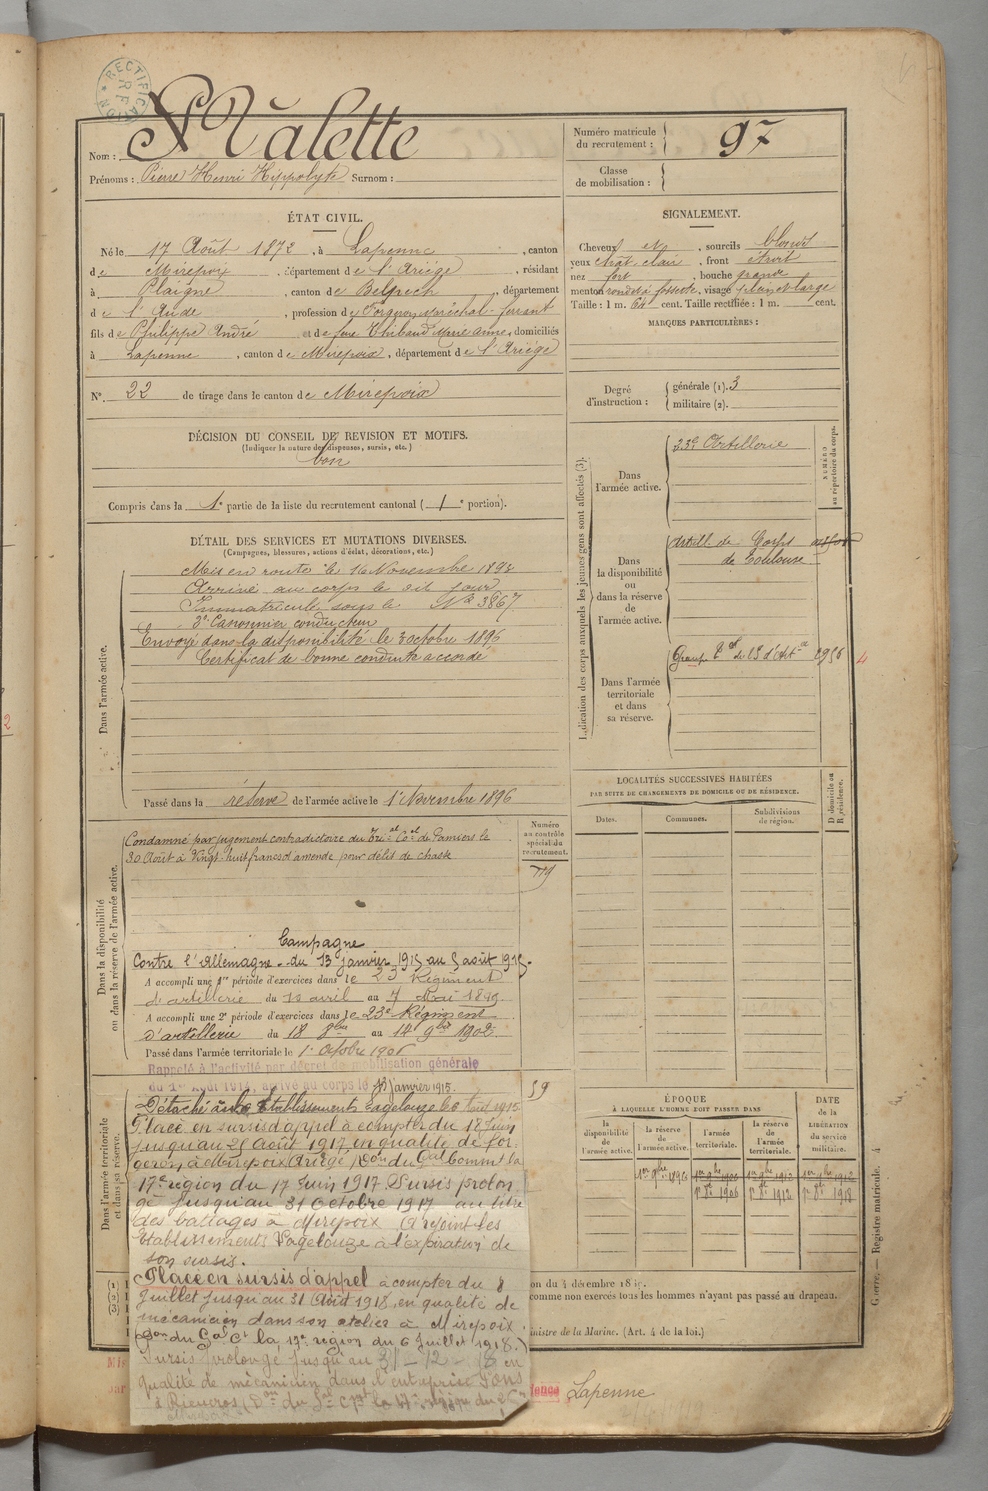 RECTIFICATION
R F
Nom : Malette
Prénoms : Pierre Henri Hippolyte Surnom :
Numéro matricule du recrutement : 97
Classe de mobilisation :
ÉTAT CIVIL.
Né le 17 Août 1872, à Lapenne, canton
de Mirepoix, département de l'Ariège, résidant
à Plaigne, canton de Belpech, département
de l'Aude, profession de Forgeron Maréchal-ferrant
fils de Philippe André et de feue Thibaud Marie Anne, domiciliés
à Lapenne, canton de Mirepoix, département de l'Ariège
N°. 22 de tirage dans le canton de Mirepoix
SIGNALEMENT.
Cheveux et, sourcils blonds
yeux chât. clair, front étroit
nez fort, bouche grande
menton rond et à fossette, visage plein et large
Taille : 1 m. 64 cent. Taille rectifiée : 1 m. cent.
MARQUES PARTICULIÈRES :
Degré d'instruction : générale (1). 3
militaire (2).
DÉCISION DU CONSEIL DE REVISION ET MOTIFS.
(Indiquer la nature des dispenses, sursis, etc.)
bon
Compris dans la 1e partie de la liste du recrutement cantonal ( 1e portion).
DÉTAIL DES SERVICES ET MUTATIONS DIVERSES.
(Campagnes, blessures, actions d'éclat, décorations, etc.)
Dans l'armée active.
Mis en route le 16 Novembre 1893
Arrivé au corps le dit jour
Immatriculé sous le N° 3867
2e Canonnier conducteur
Envoyé dans la disponibilité le 3 octobre 1896
Certificat de bonne conduite accordé
Passé dans la réserve de l'armée active le 1er Novembre 1896
Indication des corps auxquels les jeunes gens sont affectés (3).
NUMÉRO au répertoire du corps.
Dans l'armée active.
23e Artillerie
Dans la disponibilité ou dans la réserve de l'armée active.
Artill. de Corps
de Toulouse
Dans l'armée territoriale et dans sa réserve.
Groupe de 23 d'Art
4
LOCALITÉS SUCCESSIVES HABITÉES
PAR SUITE DE CHANGEMENTS DE DOMICILE OU DE RÉSIDENCE.
Dates.
Communes.
Subdivisions de région.
D domicile ou R résidence.
Dans la disponibilité ou dans la réserve de l'armée active.
Numéro au contrôle spécial du recrutement.
719
Condamné par jugement contradictoire du Tral Corel de Pamiers le
30 Août à Vingt-huit francs d'amende pour délit de chasse
Campagne
Contre l'Allemagne. du 13 janvier 1915 au 5 août 1915.
A accompli une 1re période d'exercices dans le 23 Régiment
d'artillerie du 10 avril au 7 Mai 1899
A accompli une 2e période d'exercices dans le 23e Régiment
d'artillerie du 18 8bre au 14 9bre 1902
Passé dans l'armée territoriale le 1er Octobre 1906
Rappelé à l'activité par décret de mobilisation générale
du 1er Août 1914, arrivé au corps le 13 janvier 1915.
Dans l'armée territoriale et dans sa réserve.
59
Détaché aux Etablissements Lagelouze le 6 Août 1915
Placé en sursis d'appel à compter du 18 Juin
jusqu'au 25 Août 1917, en qualité de for-
geron à Mirepoix (Ariège) Don du Gal Commt la
17e région du 17 Juin 1917 Sursis prolon
gé jusqu'au 31 Octobre 1917 au titre
des battages à Mirepoix A rejoint les
Etablissements Lagelouze à l'expiration de
son sursis.
Placé en sursis d'appel à compter du 8
Juillet jusqu'au 31 Août 1918, en qualité de
mécanicien dans son atelier à Mirepoix.
(Don du Gal Ct la 17e région du 6 Juillet 1918.)
Sursis prolongé jusqu'au 31-12-18 en
qualité de mécanicien dans l'entreprise Pons
à Rieucros (Don du Gal Ct la 17e région du
ÉPOQUE
À LAQUELLE L'HOMME DOIT PASSER DANS
la disponibilité de l'armée active.
la réserve de l'armée active.
l'armée territoriale.
la réserve de l'armée territoriale.
DATE de la LIBÉRATION du service militaire.
1er 9bre 1896 1er 9bre 1906 1er 9bre 1912 1er 9bre 1918
1er 8bre 1906 1er 8bre 1912 1er 8bre 1918
(1)
(2)
(3)
on du 4 décembre 18
comme non exercés tous les hommes n'ayant pas passé au drapeau.
inistre de la Marine. (Art. 4 de la loi.)
dence Lapenne
Guerre. — Registre matricule. 4